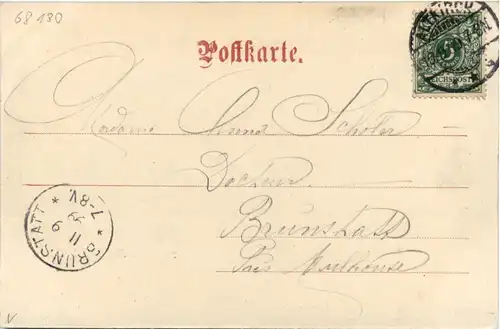 68 130
Postkarte.
5
REICHSPOST
Madame Anna Scholer
Docteur
Brunstatt
près Mulhouse
BRUNSTATT
11 9
7-8V.